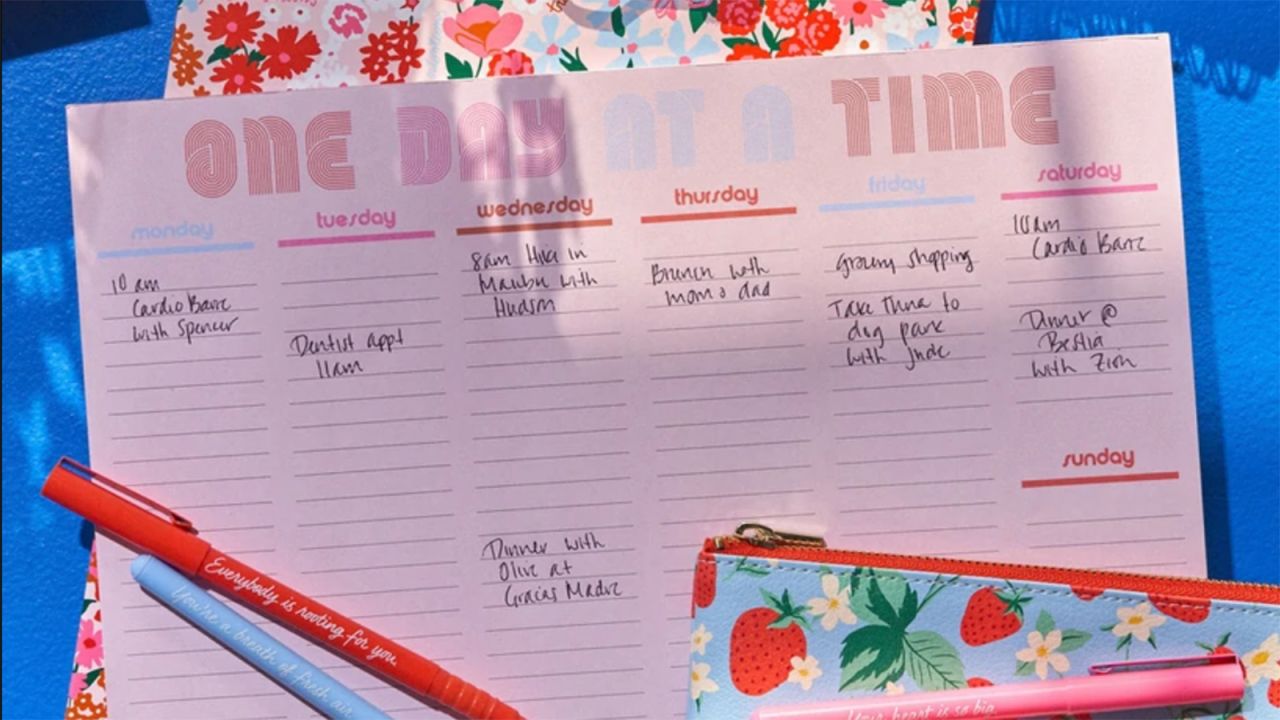 ONE DAY AT A TIME
monday
10 am
Cardio Barre
with Spencer
tuesday
Dentist appt
11am
wednesday
8am Hike in
Malibu with
Hudson
Dinner with
Olive at
Gracias Madre
thursday
Brunch with
mom & dad
friday
grocery shopping
Take Thna to
dog park
with Jude
saturday
10am
Cardio Barre
Dinner @
Bestia
with Zion
sunday
Everybody is rooting for you.
You're a breath of fresh air.
Your heart is so big.